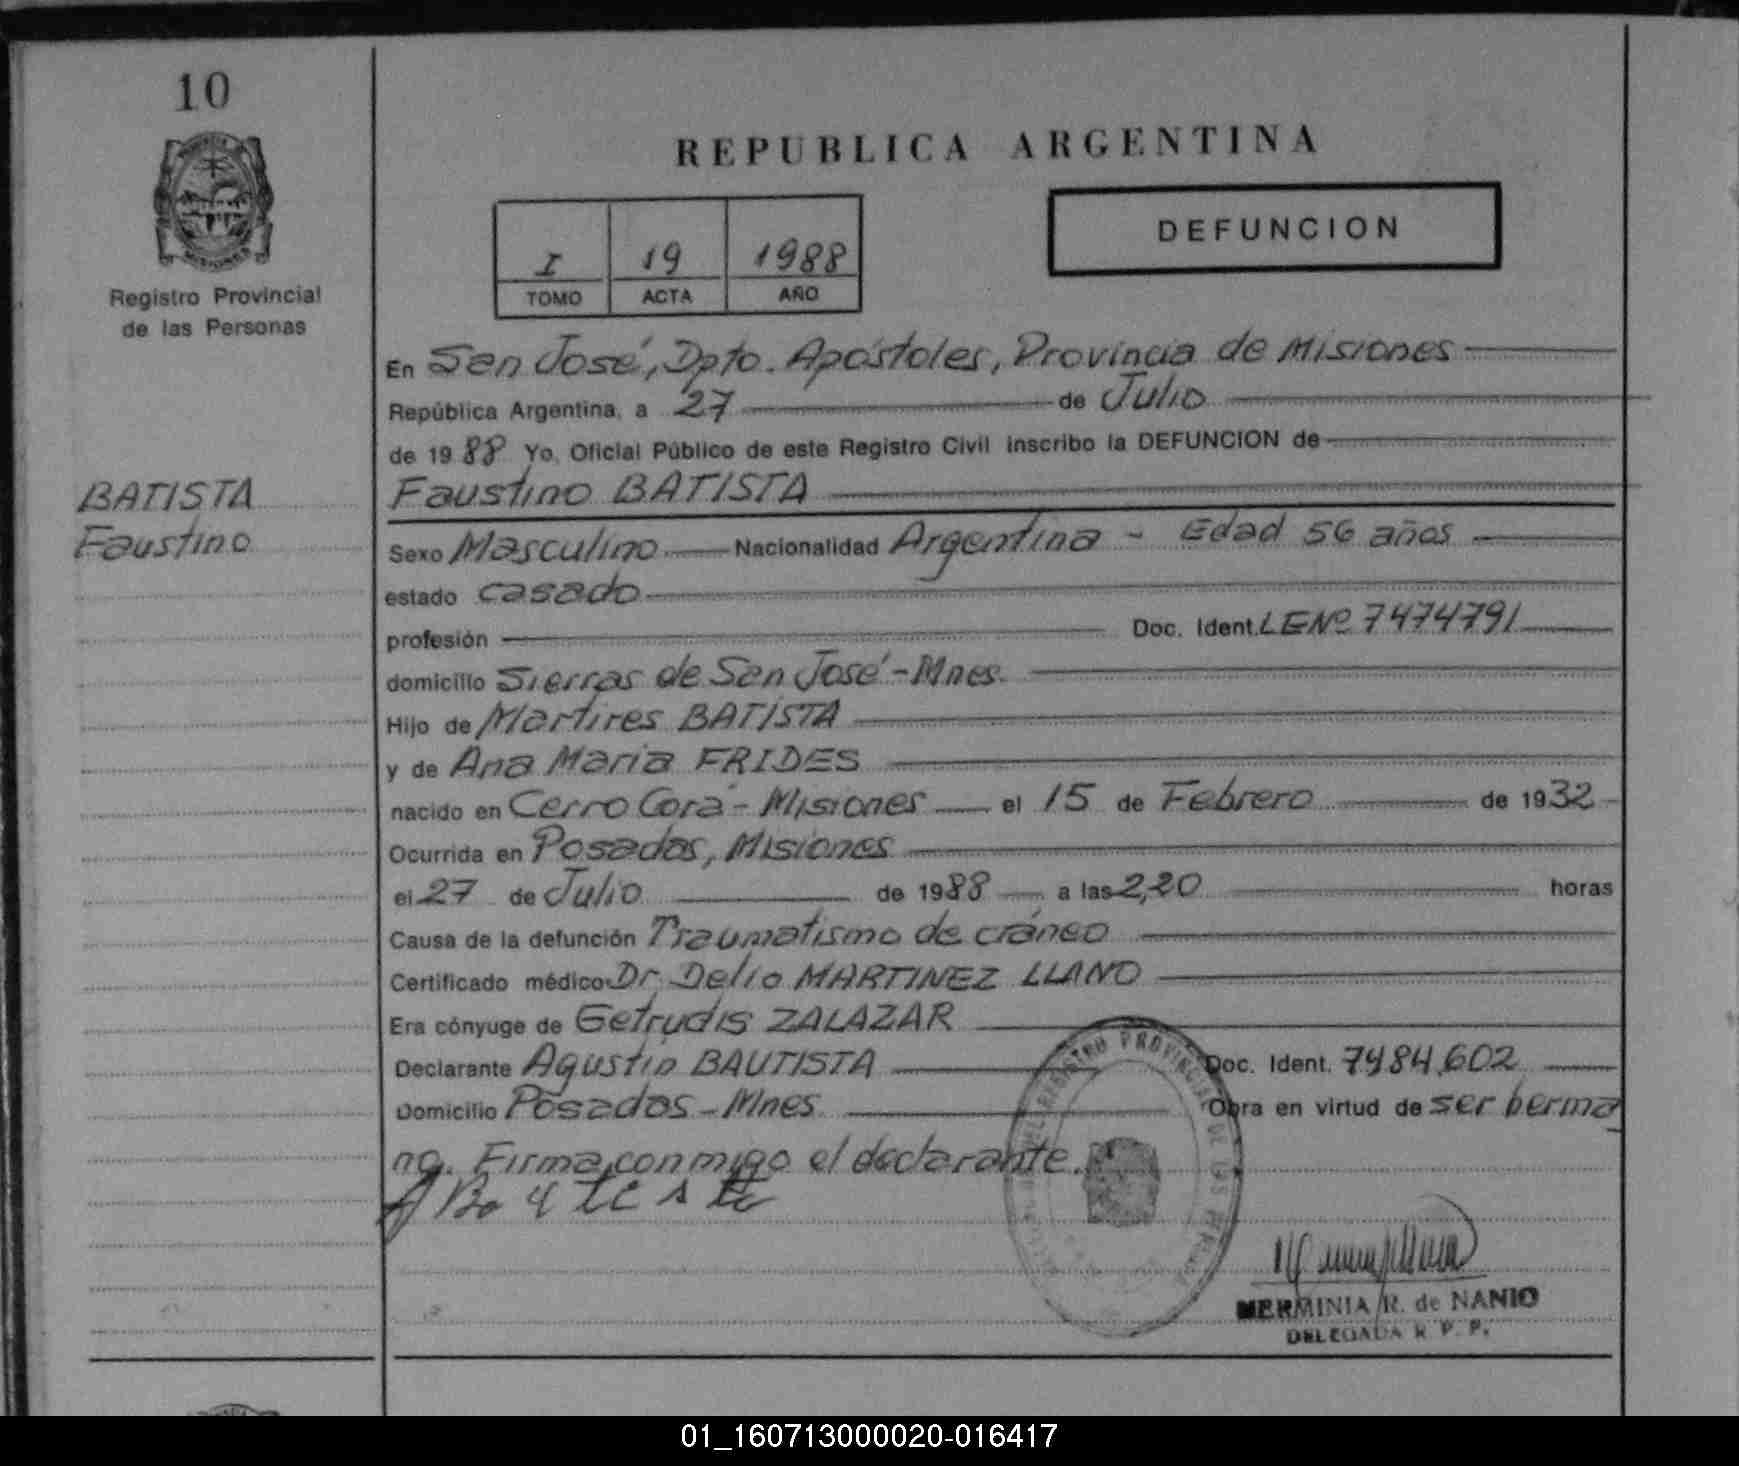 10
Registro Provincial
de las Personas
BATISTA
Faustino
REPUBLICA ARGENTINA
I 19 1988
TOMO ACTA AÑO
DEFUNCION
En San José, Dpto. Apóstoles, Provincia de Misiones
República Argentina, a 27 de Julio
de 1988 Yo, Oficial Público de este Registro Civil inscribo la DEFUNCION de
Faustino BATISTA
Sexo Masculino Nacionalidad Argentina - Edad 56 años
estado casado
profesión Doc. Ident. LENº 7474791
domicilio Sierras de San José - Mnes.
Hijo de Martires BATISTA
y de Ana Maria FRIDES
nacido en Cerro Corá - Misiones el 15 de Febrero de 1932
Ocurrida en Posadas, Misiones
el 27 de Julio de 1988 a las 2,20 horas
Causa de la defunción Traumatismo de cráneo
Certificado médico Dr. Delio MARTINEZ LLANO
Era cónyuge de Getrudis ZALAZAR
Declarante Agustin BAUTISTA Doc. Ident. 7484602
Domicilio Posadas - Mnes. Obra en virtud de ser herma
no. Firma conmigo el declarante.
HERMINIA R. de NANIO
DELEGADA R. P. P.
01_160713000020-016417